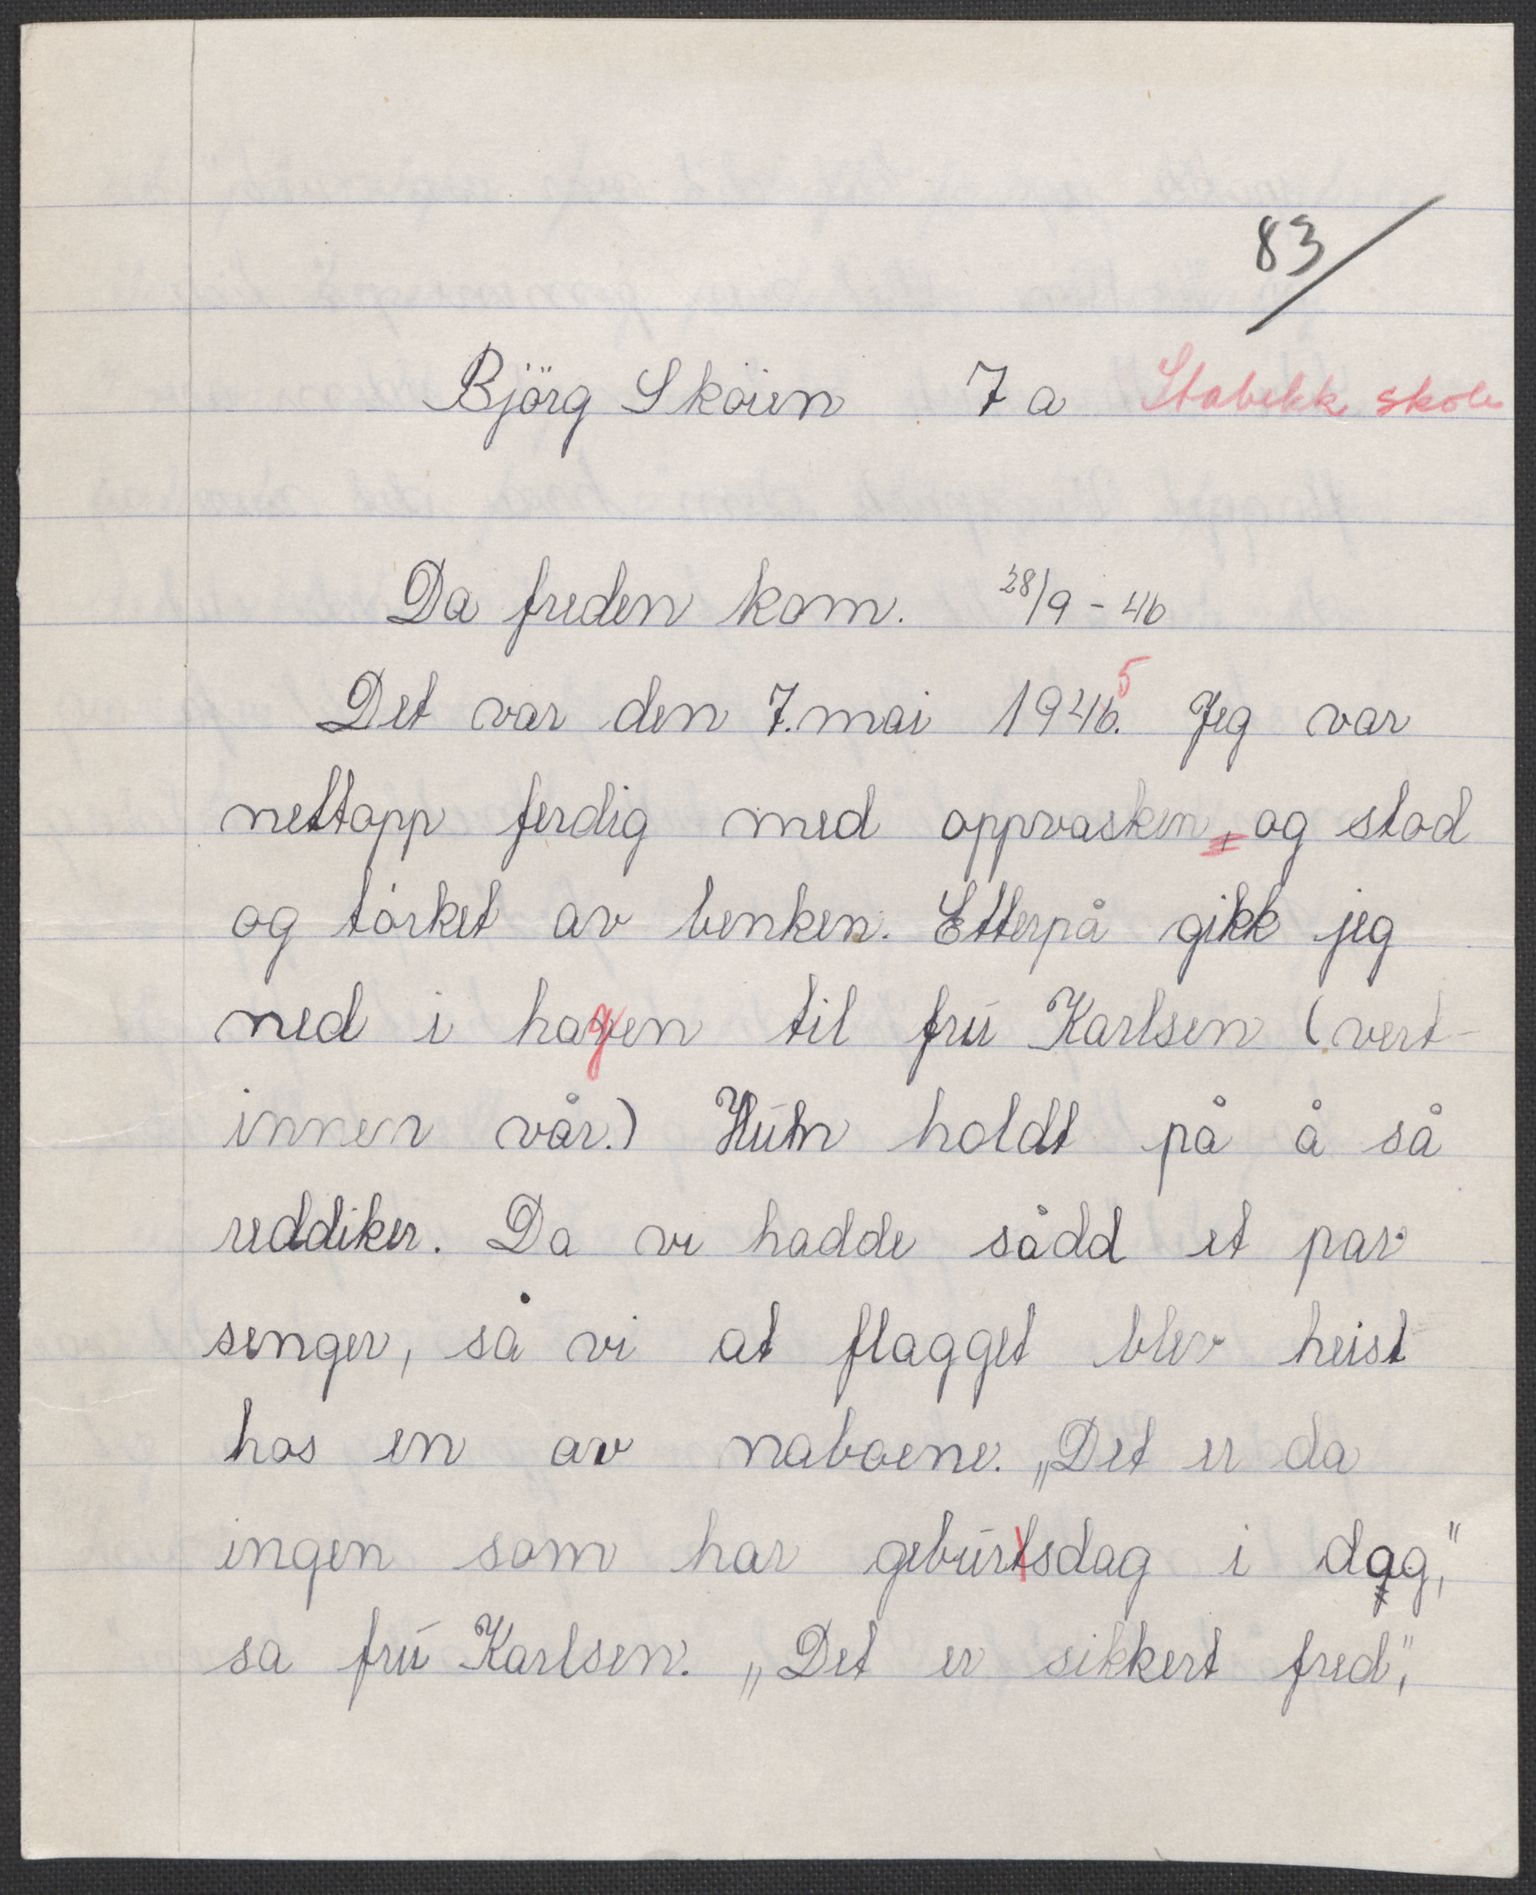 83
Björg Sköien 7 a Stabekk skole
Da freden kom. 28/9 - 46
Det var den 7. mai 1946. 5 Jeg var
nettopp ferdig med oppvasken, og stod
og törket av benken. Etterpå gikk jeg
ned i hagen til fru Karlsen (vert-
innen vår.) Hun holdt på å så
reddiker. Da vi hadde sådd et par
senger, så vi at flagget blev heist
hos en av naboene. „Det er da
ingen som har geburtsdag i dag,"
sa fru Karlsen. „Det er sikkert fred",